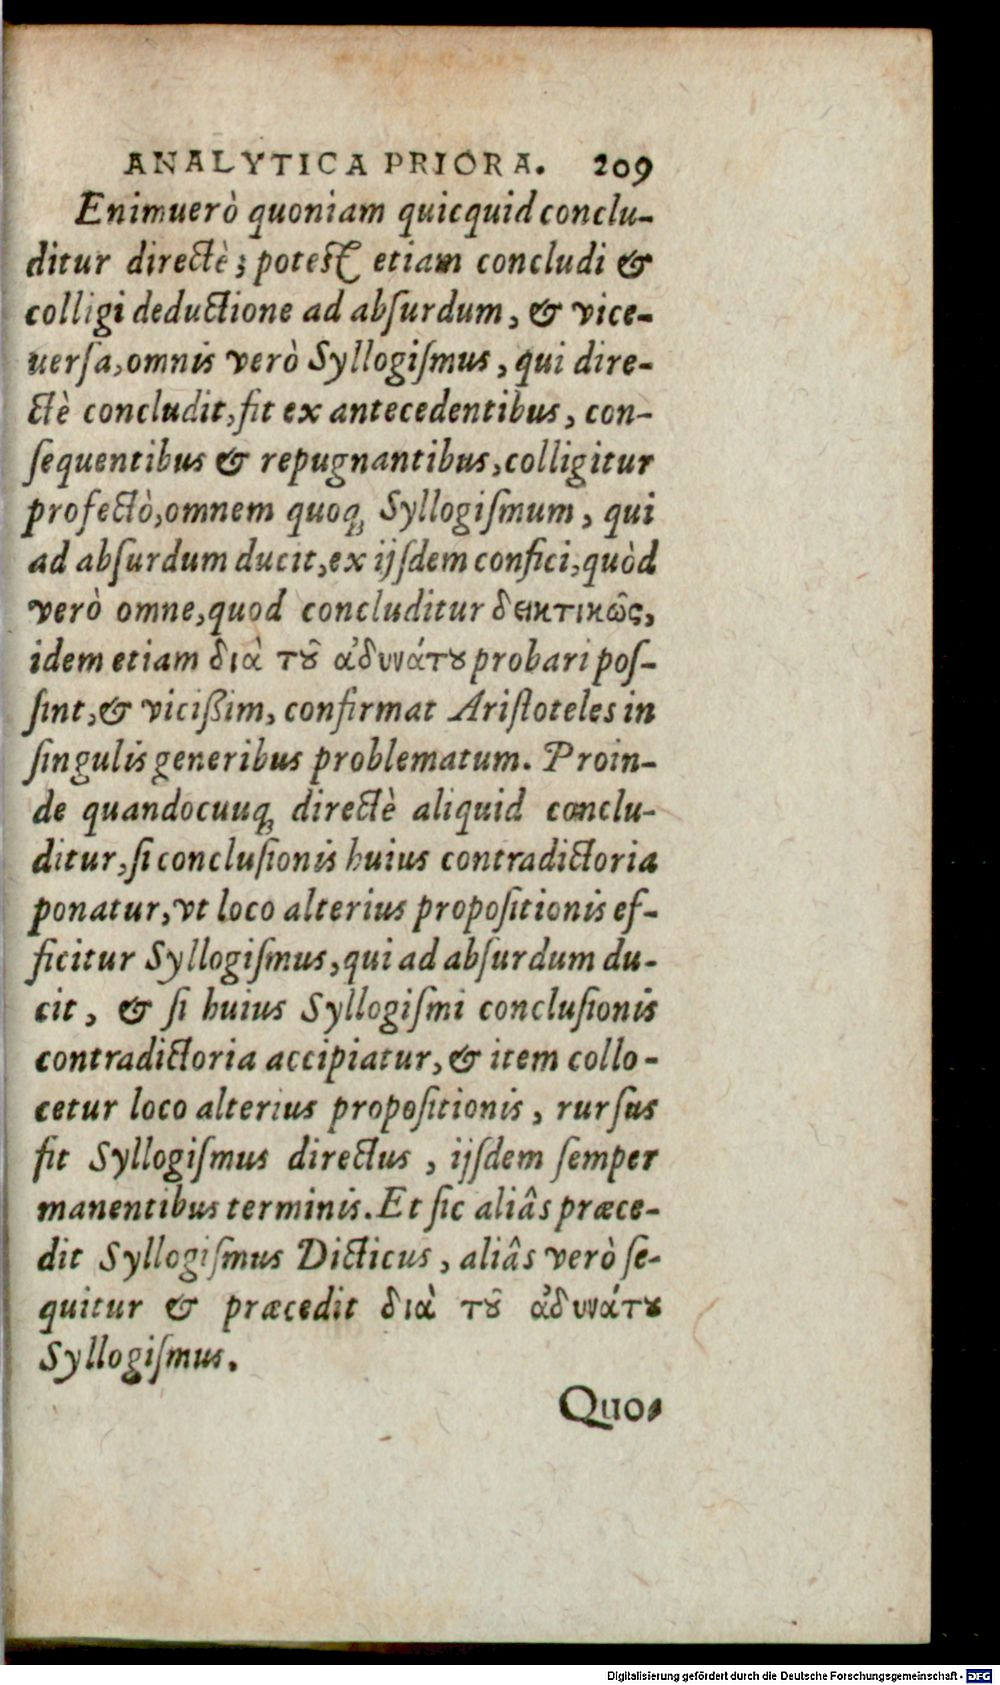 ANALYTICA PRIORA. 209
Enimuerò quoniam quicquid conclu-
ditur directè; potest etiam concludi &
colligi deductione ad abſurdum, & vice-
uerſa, omnis verò Syllogiſmus, qui dire-
ctè concludit, fit ex antecedentibus, con-
ſequentibus & repugnantibus, colligitur
profectò, omnem quoq; Syllogiſmum, qui
ad abſurdum ducit, ex ijſdem confici, quòd
verò omne, quod concluditur δεικτικῶς,
idem etiam διὰ τȣ͂ ἀδυνάτȣ probari poſ-
ſint, & vicißim, confirmat Ariſtoteles in
ſingulis generibus problematum. Proin-
de quandocuuq; directè aliquid conclu-
ditur, ſi concluſionis huius contradictoria
ponatur, vt loco alterius propoſitionis ef-
ficitur Syllogiſmus, qui ad abſurdum du-
cit, & ſi huius Syllogiſmi concluſionis
contradictoria accipiatur, & item collo-
cetur loco alterius propoſitionis, rurſus
fit Syllogiſmus directus, ijſdem ſemper
manentibus terminis. Et ſic aliâs præce-
dit Syllogiſmus Dicticus, aliâs verò ſe-
quitur & præcedit διὰ τȣ͂ ἀδυνάτȣ
Syllogiſmus.
Quo-
Digitalisierung gefördert durch die Deutsche Forschungsgemeinschaft - DFG